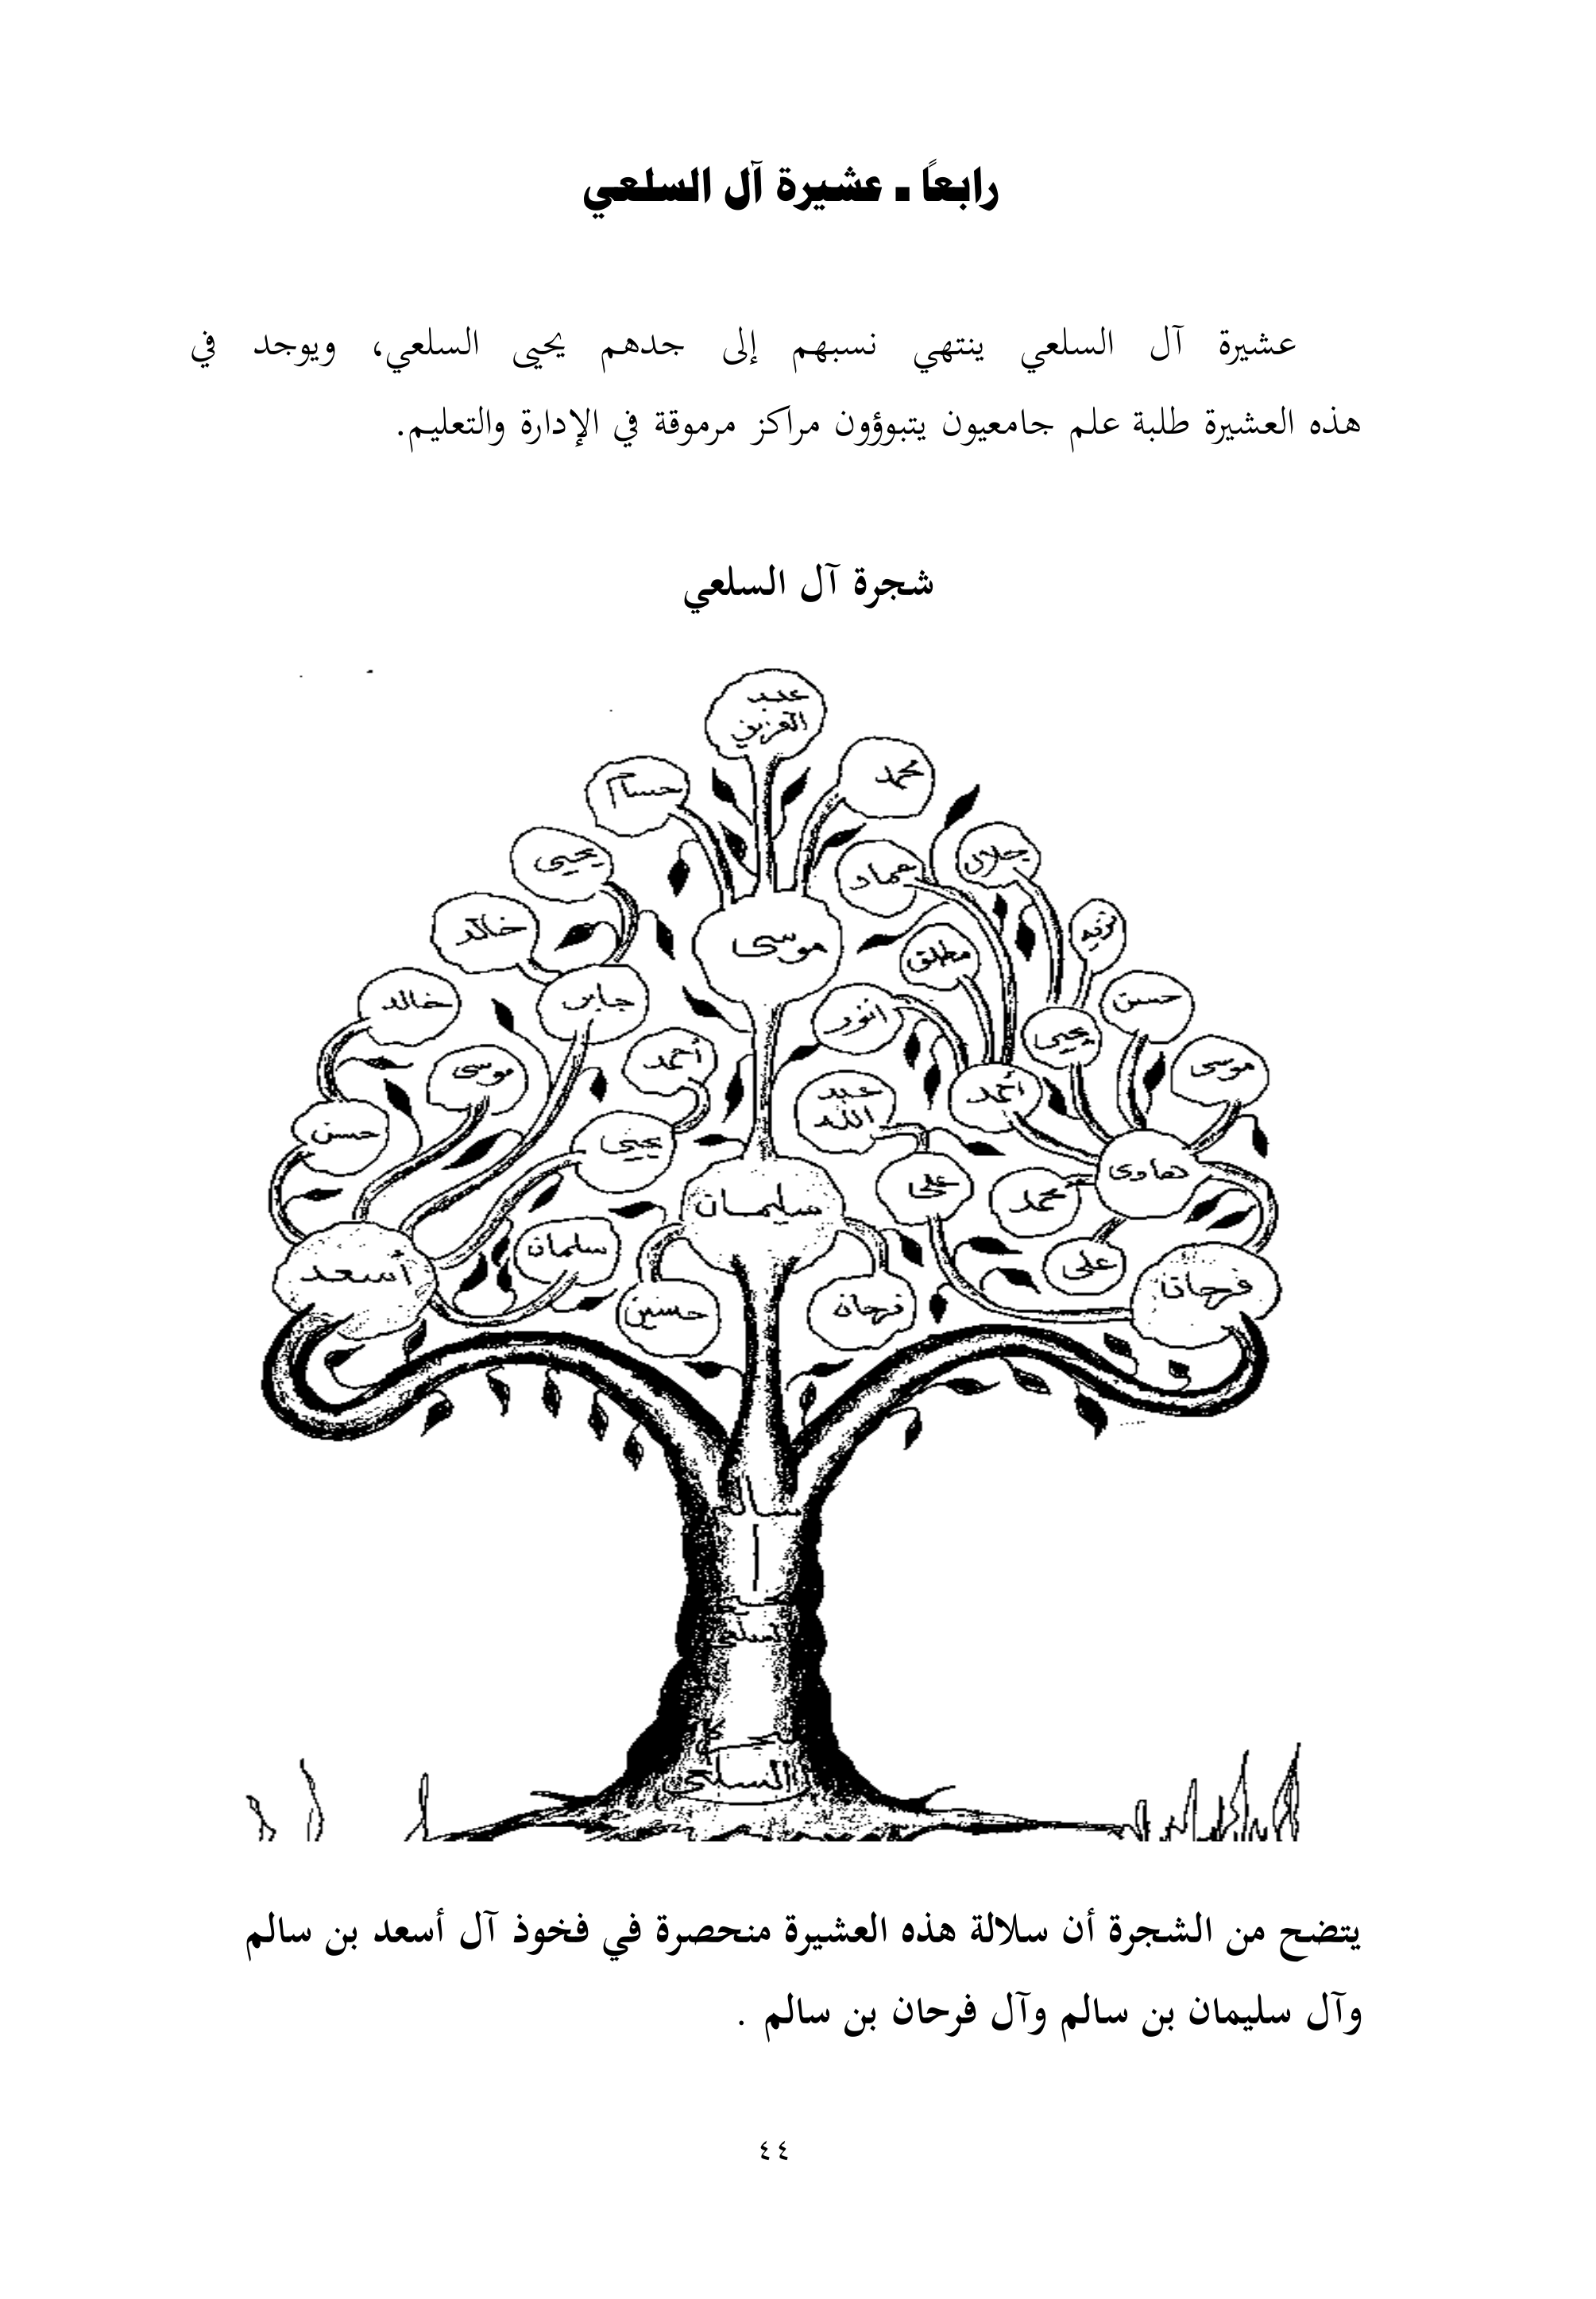 رابعاً ـ عشيرة آل السلعي
عشيرة آل السلعي ينتهي نسبهم إلى جدهم يحيى السلعي، ويوجد في
هذه العشيرة طلبة علم جامعيون يتبوؤون مراكز مرموقة في الإدارة والتعليم.
شجرة آل السلعي
عبد
العزيز
محمد
حسام
جلال
عماد
يحيى
خالد
موسى
مطلق
حسن
خالد
جابر
انور
يحيى
موسى
أحمد
موسى
أحمد
عبد
الله
حسن
يحيى
هادى
على
محمد
سليمان
سلمان
على
أسعد
فرحان
حسين
فرحان
سالم
السلعي
يتضح من الشجرة أن سلالة هذه العشيرة منحصرة في فخوذ آل أسعد بن سالم
وآل سليمان بن سالم وآل فرحان بن سالم .
٤٤